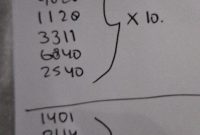 1120
3311
6840
2540
X 10.
1401